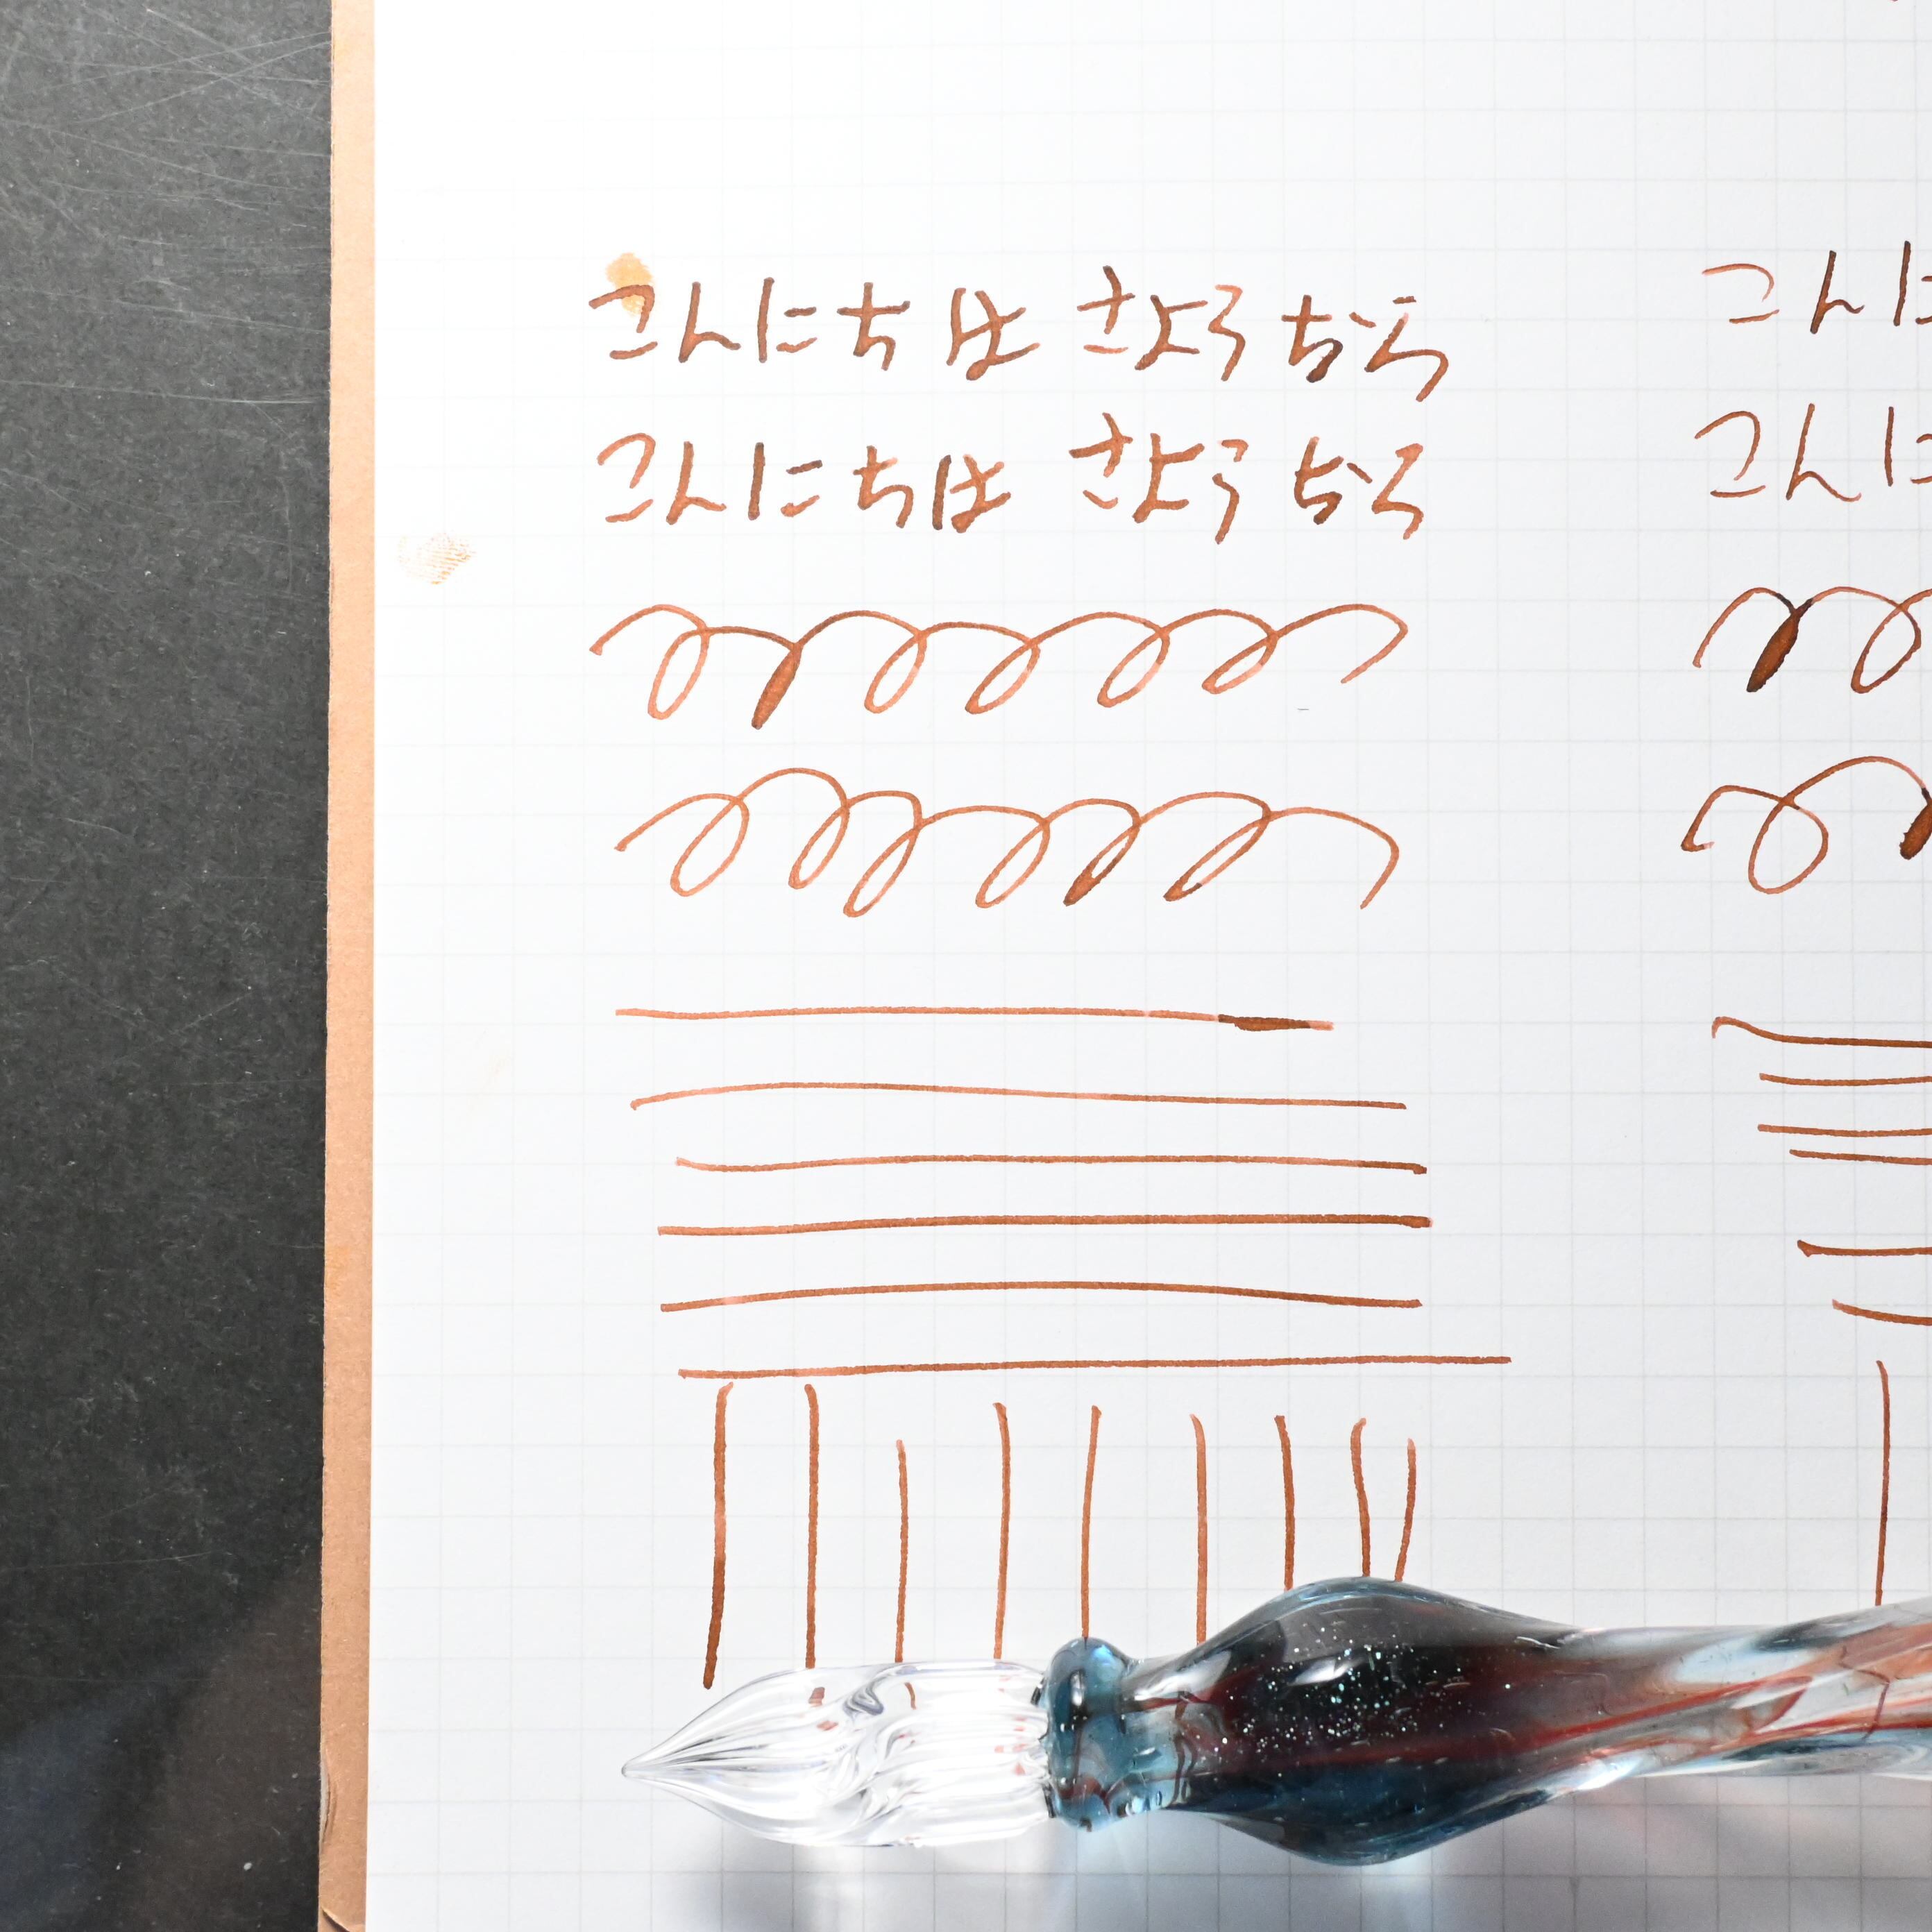 こんにちは さようなら
こんにちは さようなら
こんに
こんに